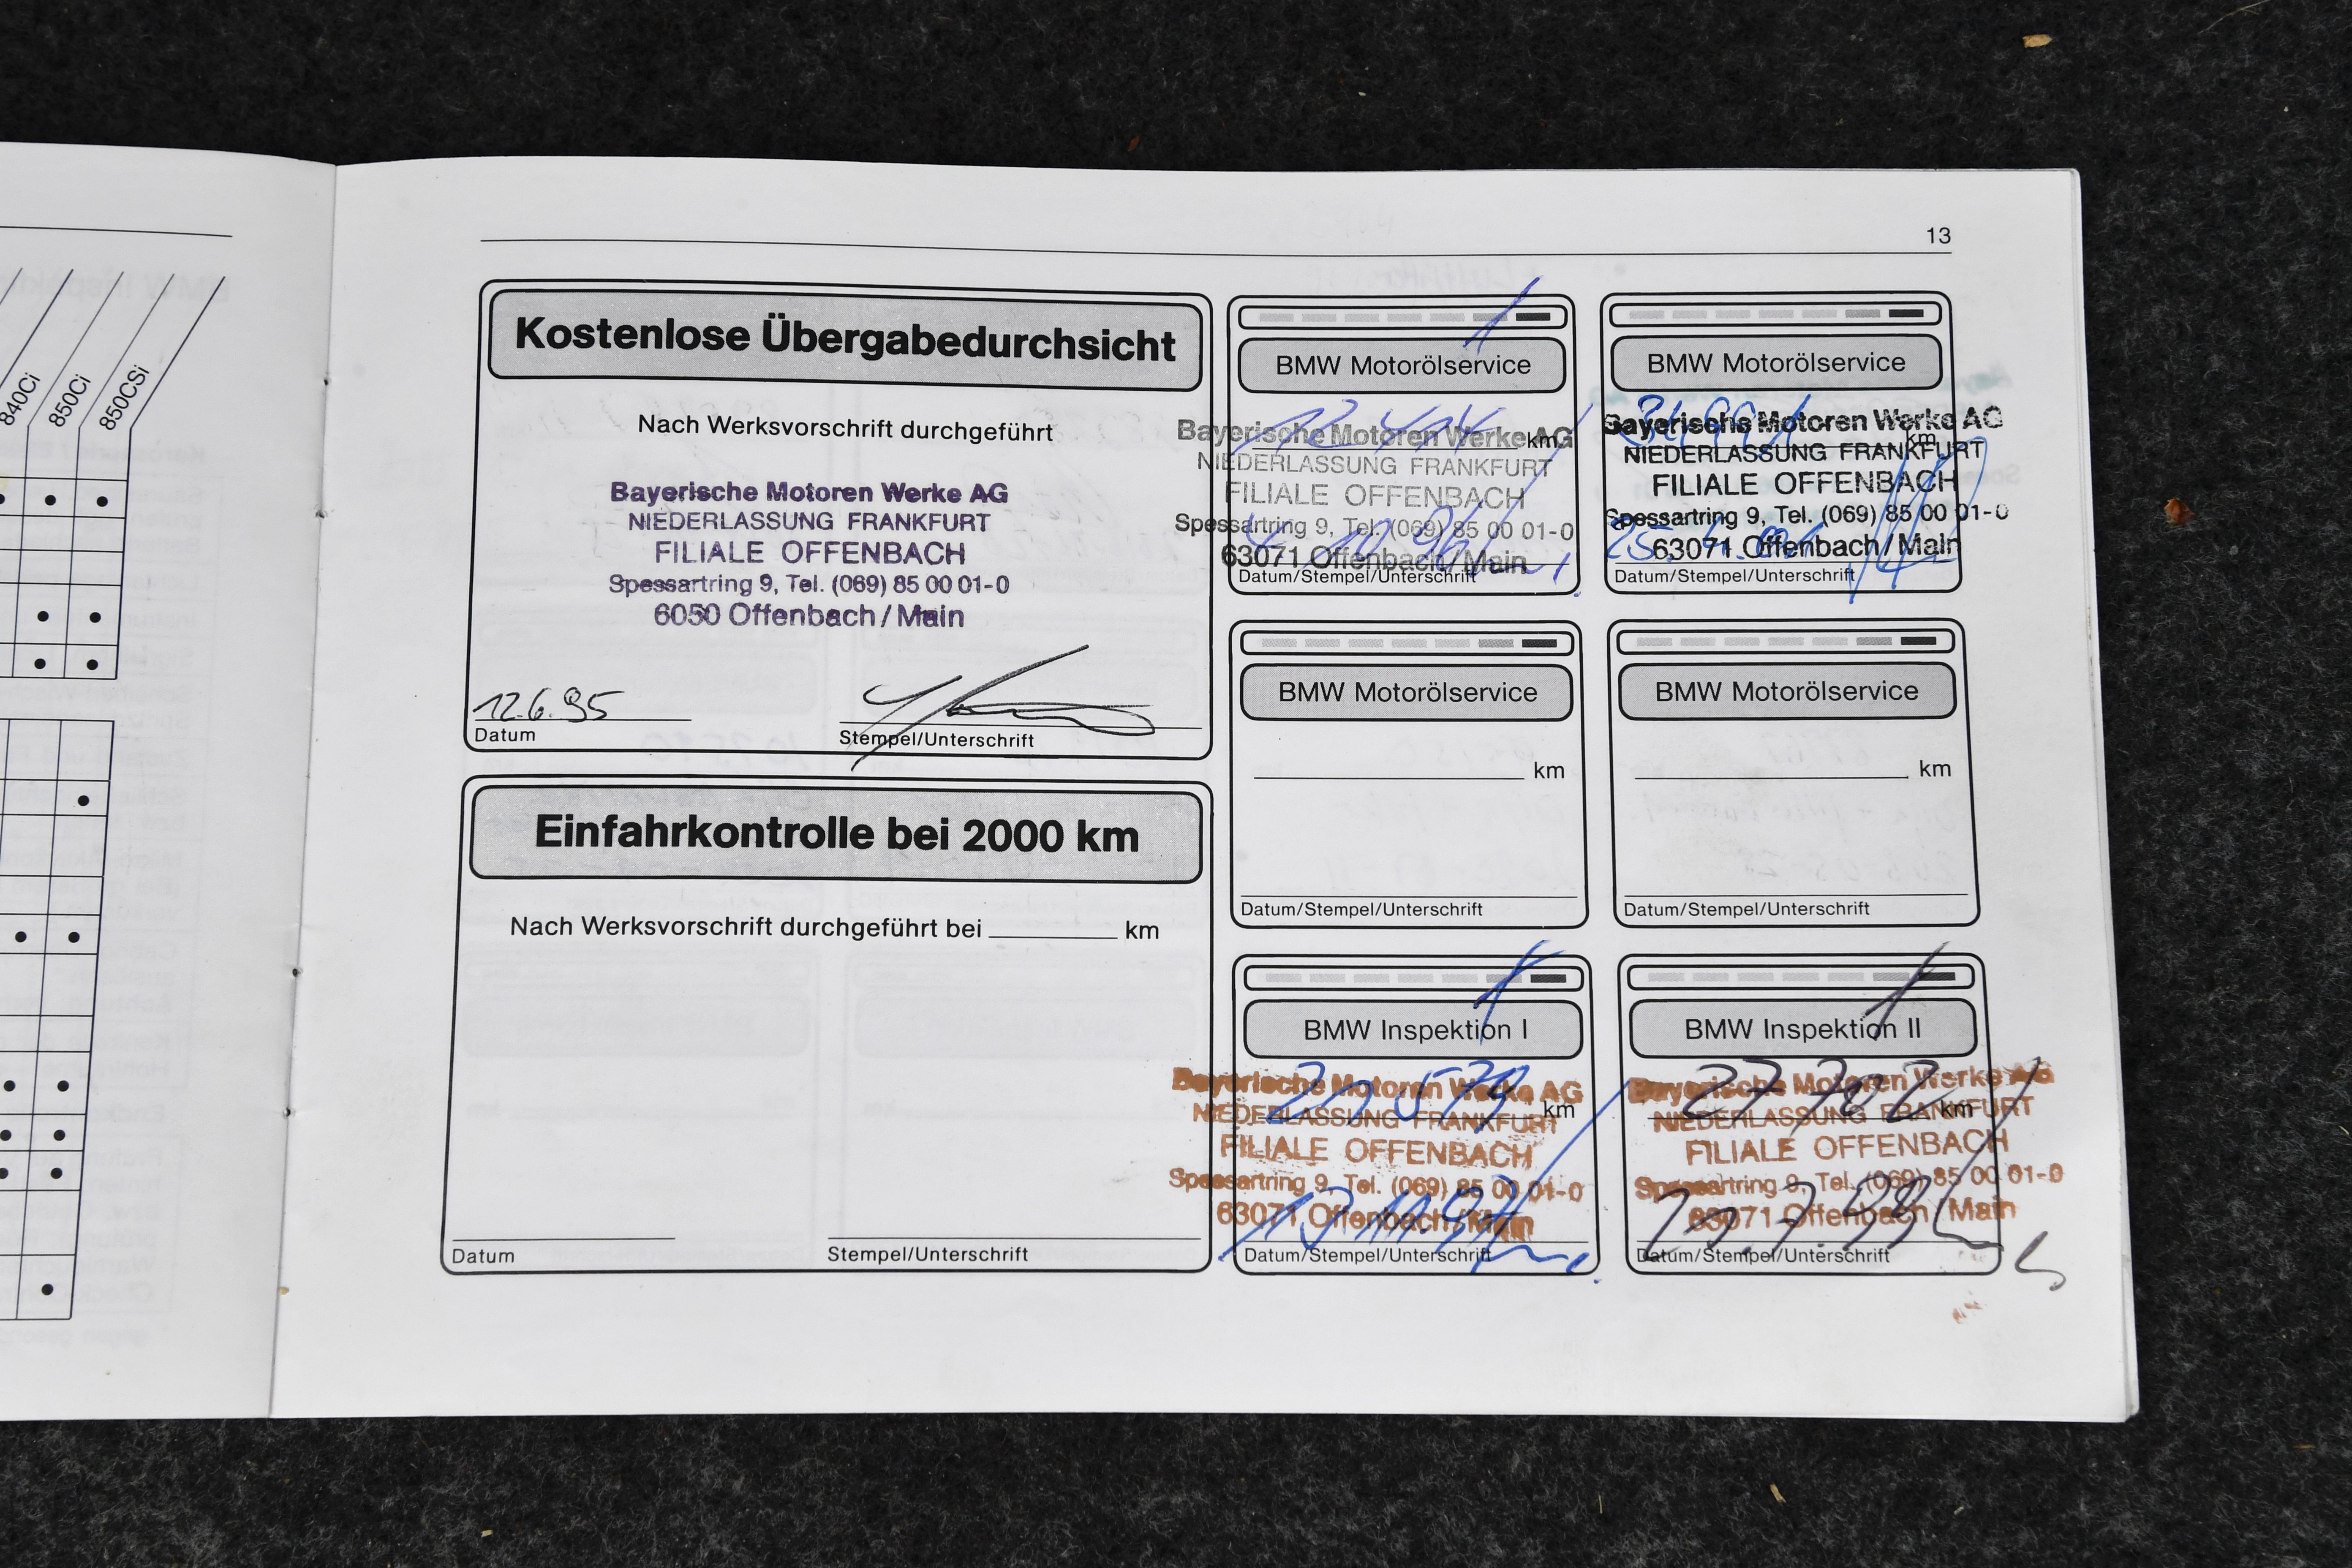 840Ci
850Ci
850CSi
13
Kostenlose Übergabedurchsicht
Nach Werksvorschrift durchgeführt
Bayerische Motoren Werke AG
NIEDERLASSUNG FRANKFURT
FILIALE OFFENBACH
Spessartring 9, Tel. (069) 85 00 01-0
6050 Offenbach / Main
12.6.95
Datum
Stempel/Unterschrift
Einfahrkontrolle bei 2000 km
Nach Werksvorschrift durchgeführt bei km
Datum
Stempel/Unterschrift
BMW Motorölservice
km
Bayerische Motoren Werke AG
NIEDERLASSUNG FRANKFURT
FILIALE OFFENBACH
Spessartring 9, Tel. (069) 85 00 01-0
63071 Offenbach / Main
Datum/Stempel/Unterschrift
BMW Motorölservice
Bayerische Motoren Werke AG
km
NIEDERLASSUNG FRANKFURT
FILIALE OFFENBACH
Spessartring 9, Tel. (069) 85 00 01-0
63071 Offenbach / Main
Datum/Stempel/Unterschrift
BMW Motorölservice
km
Datum/Stempel/Unterschrift
BMW Motorölservice
km
Datum/Stempel/Unterschrift
BMW Inspektion I
Bayerische Motoren Werke AG
km
NIEDERLASSUNG FRANKFURT
FILIALE OFFENBACH
Spessartring 9, Tel. (069) 85 00 01-0
63071 Offenbach / Main
Datum/Stempel/Unterschrift
BMW Inspektion II
27 702
Bayerische Motoren Werke AG
km
NIEDERLASSUNG FRANKFURT
FILIALE OFFENBACH
Spessartring 9, Tel. (069) 85 00 01-0
63071 Offenbach / Main
Datum/Stempel/Unterschrift